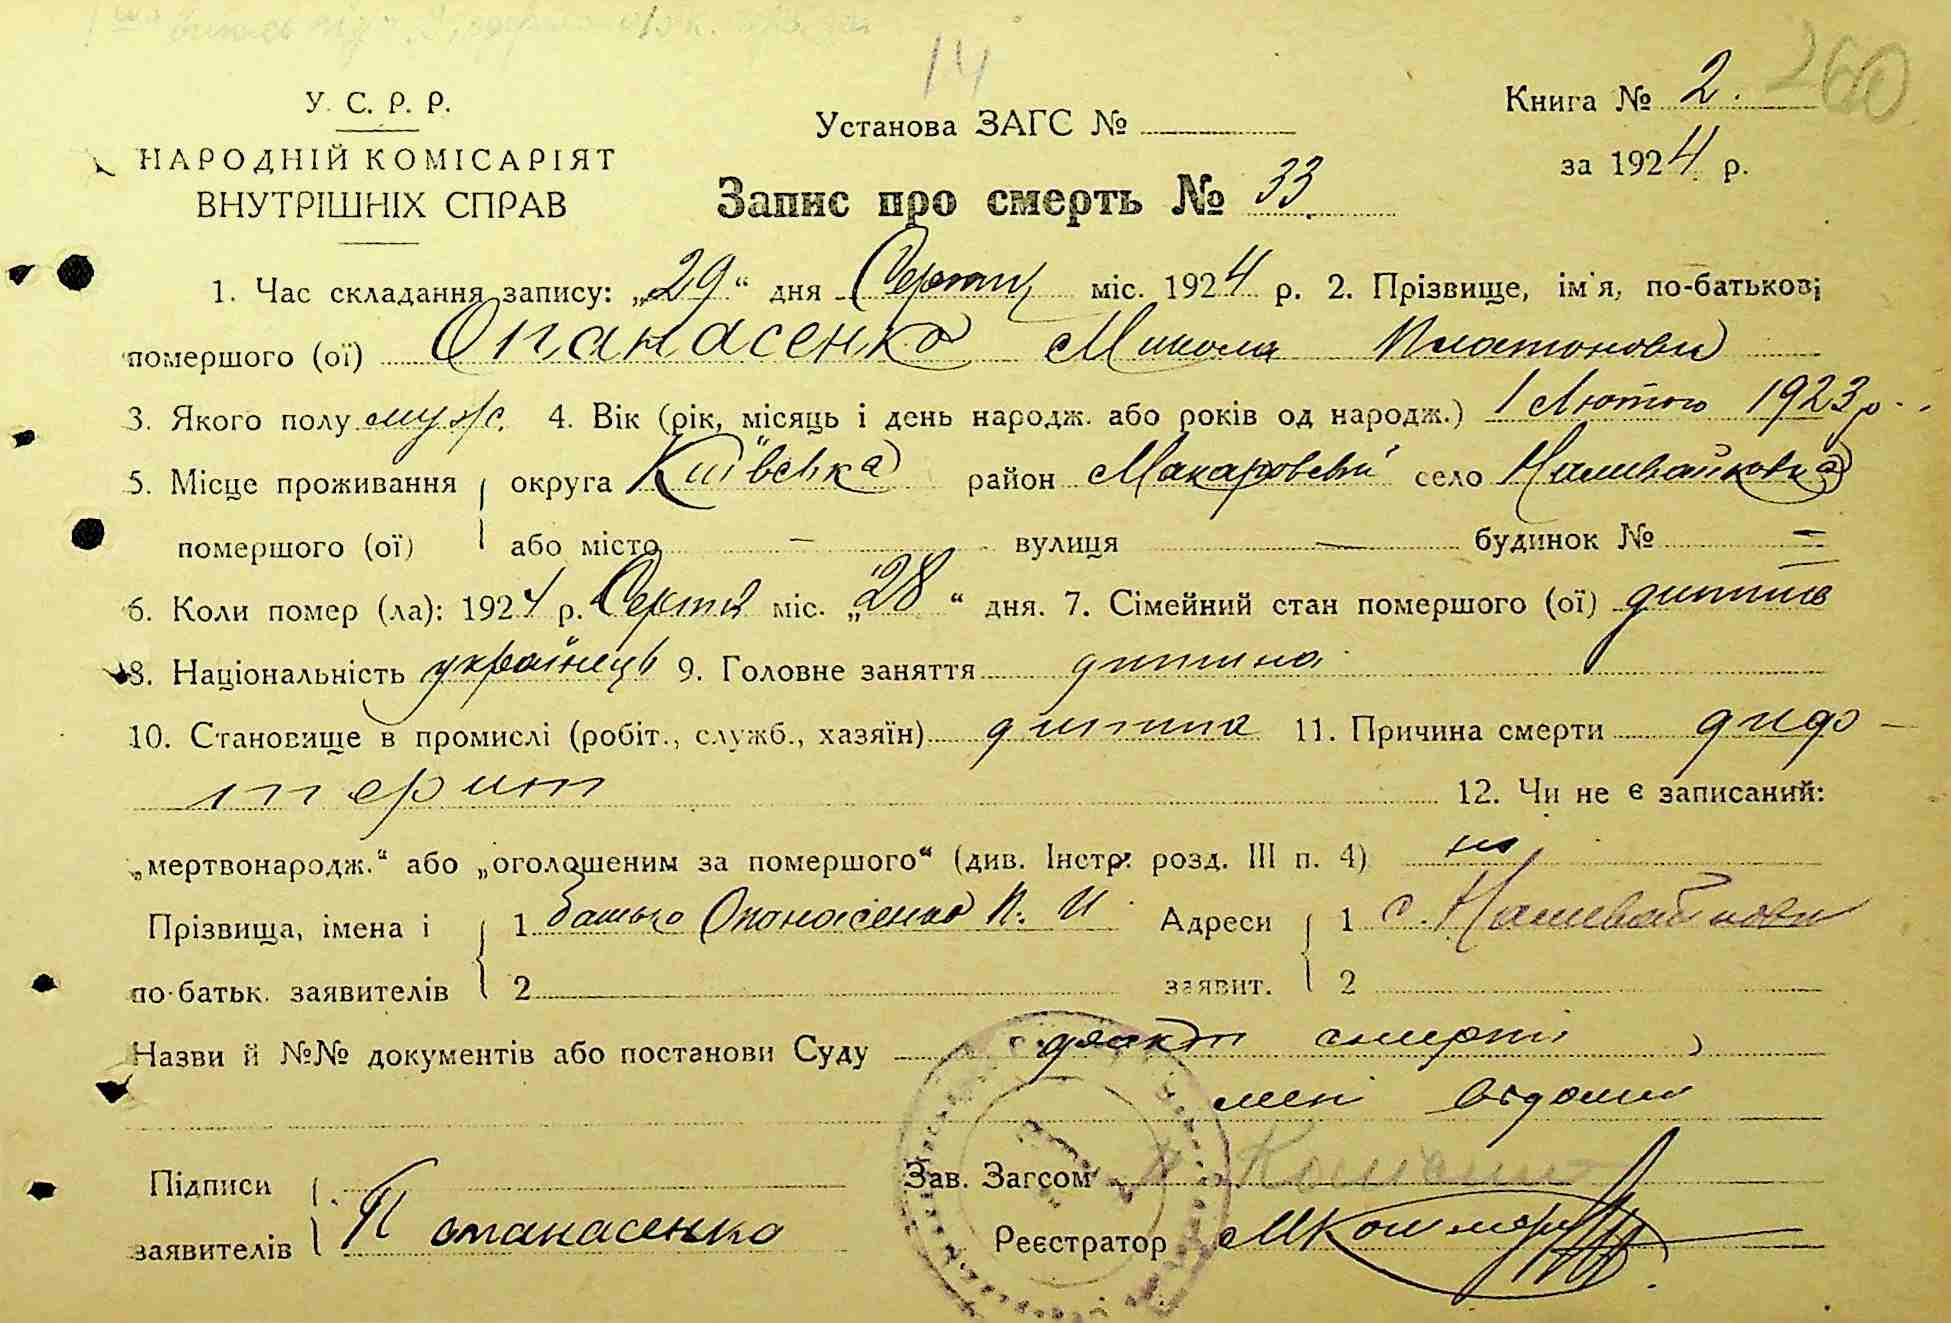 14
260
У. С. Р. Р.
НАРОДНІЙ КОМІСАРІЯТ
ВНУТРІШНІХ СПРАВ
Установа ЗАГС №
Запис про смерть № 33
Книга № 2.
за 1924 р.
1. Час складання запису: „29“ дня Серпня міс. 1924 р. 2. Прізвище, ім'я, по-батькові
помершого (ої) Опанасенко Микола Платонови
3. Якого полу муж. 4. Вік (рік, місяць і день народж. або років од народж.) 1 Лютого 1923 р.
5. Місце проживання округа Київська район Макаровський село Наливайковка
помершого (ої) або місто — вулиця — будинок № —
6. Коли помер (ла): 1924 р. Серпня міс. „28“ дня. 7. Сімейний стан помершого (ої) дитина
8. Національність українець 9. Головне заняття дитина
10. Становище в промислі (робіт., служб., хазяїн) дитина 11. Причина смерти дифте-
терит 12. Чи не є записаний:
„мертвонародж.“ або „оголошеним за помершого“ (див. Інстр. розд. III п. 4) ні
Прізвища, імена і 1 батько Опанасенко П. И. Адреси 1 с. Наливайковки
по-батьк. заявителів 2 заявит. 2
Назви й №№ документів або постанови Суду факт смерті
мені відомий
Підписи Зав. Загсом
заявителів П Опанасенко Реєстратор